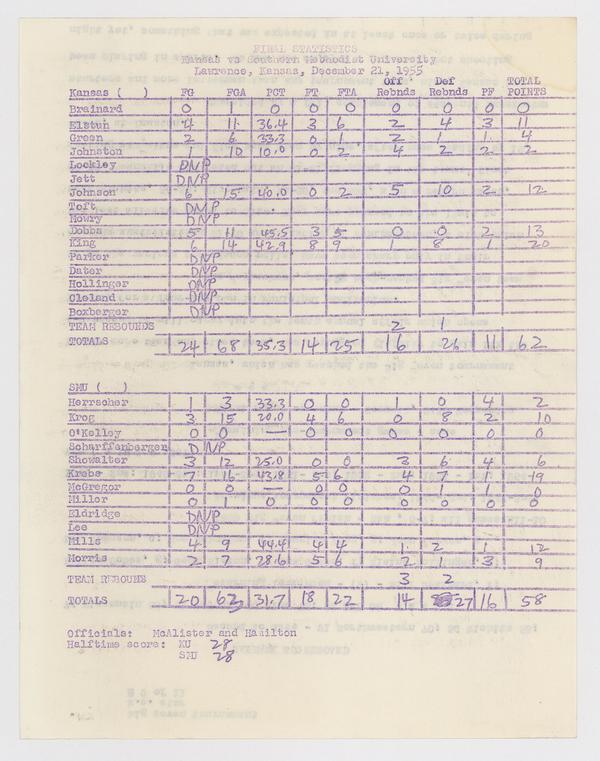 FINAL STATISTICS
Kansas vs Southern Methodist University
Lawrence, Kansas, December 21, 1955
Off Def TOTAL
Kansas ( ) FG FGA PCT FT FTA Rebnds Rebnds PF POINTS
Brainard 0 1 0 0 0 0 0 0 0
Elstun 4 11 36.4 3 6 2 4 3 11
Green 2 6 33.3 0 1 2 1 1 4
Johnston 1 10 10.0 0 2 4 2 2 2
Lockley DNP
Jett DNP
Johnson 6 15 40.0 0 2 5 10 2 12
Toft DNP
Mowry DNP
Dobbs 5 11 45.5 3 5 0 0 2 13
King 6 14 42.9 8 9 1 8 1 20
Parker DNP
Dater DNP
Hollinger DNP
Cleland DNP
Boxberger DNP
TEAM REBOUNDS 2 1
TOTALS 24 68 35.3 14 25 16 26 11 62
SMU ( )
Herrscher 1 3 33.3 0 0 1 0 4 2
Krog 3 15 20.0 4 6 0 8 2 10
O'Kelley 0 0 — 0 0 0 0 0 0
Scharffenberger DNP
Showalter 3 12 25.0 0 0 3 6 4 6
Krebs 7 16 43.8 5 6 4 7 1 19
McGregor 0 0 — 0 0 0 1 1 0
Miller 0 1 0 0 0 0 0 0 0
Eldridge DNP
Lee DNP
Mills 4 9 44.4 4 4 1 2 1 12
Morris 2 7 28.6 5 6 2 1 3 9
TEAM REBOUNDS 3 2
TOTALS 20 63 31.7 18 22 14 27 16 58
Officials: McAlister and Hamilton
Halftime score: KU 28
SMU 28